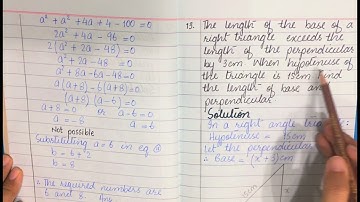 a² + a² + 4a + 4 - 100 = 0
2a² + 4a - 96 = 0
2(a² + 2a - 48) = 0
a² + 2a - 48 = 0
a² + 8a - 6a - 48 = 0
a(a+8) - 6(a+8) = 0
(a+8) (a-6) = 0
a+8 = 0 or a-6 = 0
a = -8 a = 6
Not possible
Substituting a = 6 in eq
b = 6 + 2
b = 8
∴ The required numbers are
6 and 8. Ans
13. The length of the base of a
right triangle exceeds the
length of the perpendicular
by 3cm When hypotenuse of
the triangle is 15cm find
the length of base and
perpendicular
Solution
In a right angle triangle:
Hypotenuse = 15cm
let the perpendicular
∴ Base = (x+3)cm
15cm
x